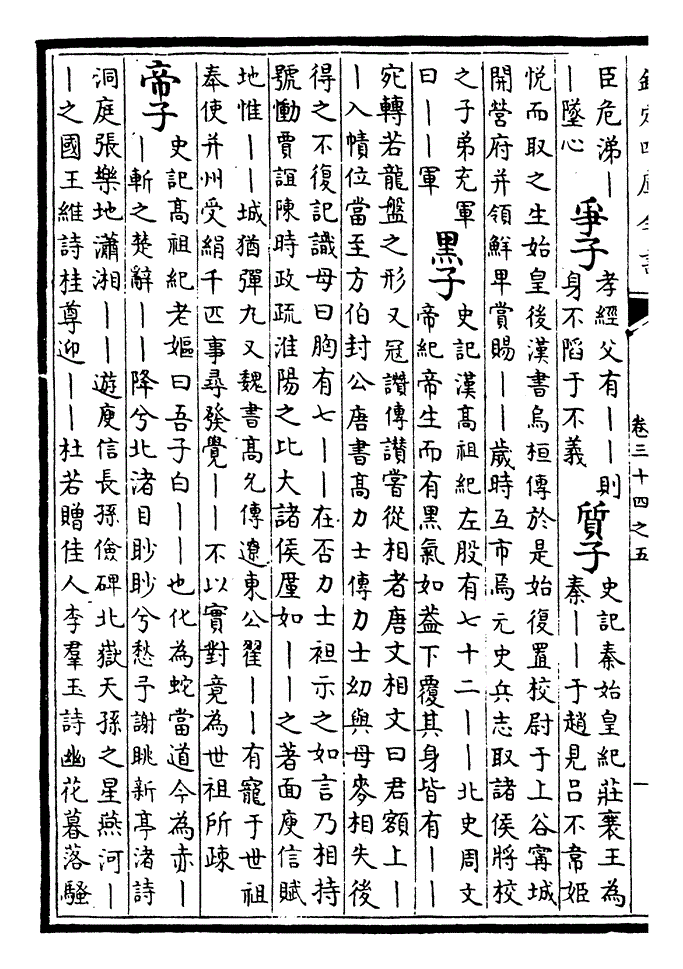 欽定四庫全書
卷三十四之五
一
臣危涕｜
｜墜心
爭子
孝經父有｜｜則
身不䧟于不義
質子
史記秦始皇紀莊襄王為
秦｜｜于趙見呂不韋姬
悅而取之生始皇後漢書烏桓傳於是始復置校尉于上谷甯城
開營府并領鮮卑賞賜｜｜歲時互市焉元史兵志取諸侯將校
之子弟充軍
曰｜｜軍
黑子
史記漢高祖紀左股有七十二｜｜北史周文
帝紀帝生而有黑氣如葢下覆其身皆有｜｜
宛轉若龍盤之形又冠讚傳讚嘗從相者唐文相文曰君額上｜
｜入幘位當至方伯封公唐書高力士傳力士幼與母麥相失後
得之不復記識母曰胸有七｜｜在否力士袒示之如言乃相持
號慟賈誼陳時政疏淮陽之比大諸侯厪如｜｜之著面庾信賦
地惟｜｜城猶彈丸又魏書高允傳遼東公翟｜｜有寵于世祖
奉使并州受絹千匹事尋發覺｜｜不以實對竟為世祖所疎
帝子
史記高祖紀老嫗曰吾子白｜｜也化為蛇當道今為赤｜
｜斬之楚辭｜｜降兮北渚目眇眇兮愁予謝眺新亭渚詩
洞庭張樂地瀟湘｜｜遊庾信長孫儉碑北嶽天孫之星燕河｜
｜之國王維詩桂尊迎｜｜杜若贈佳人李羣玉詩幽花暮落騷